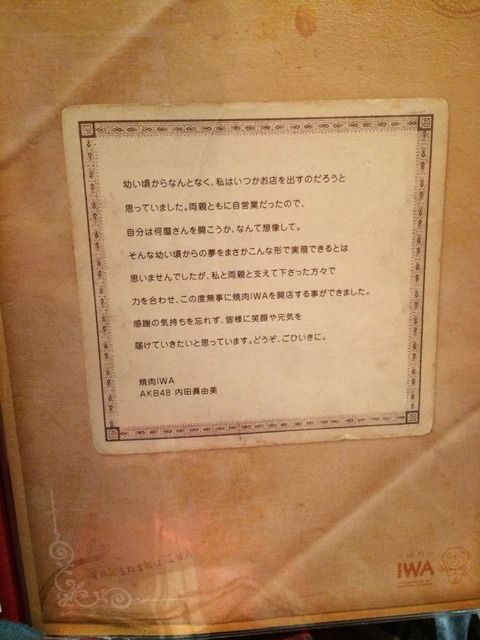 幼い頃からなんとなく、私はいつかお店を出すのだろうと
思っていました。両親ともに自営業だったので、
自分は何屋さんを開こうか、なんて想像して。
そんな幼い頃からの夢をまさかこんな形で実現できるとは
思いませんでしたが、私と両親と支えて下さった方々で
力を合わせ、この度無事に焼肉IWAを開店する事ができました。
感謝の気持ちを忘れず、皆様に笑顔や元気を
届けていきたいと思っています。どうぞ、ごひいきに。
焼肉IWA
AKB48 内田眞由美
yakiniku IWA
焼肉
IWA